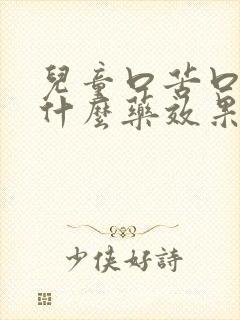 兒童口苦口
什麼藥效果
少侠好詩